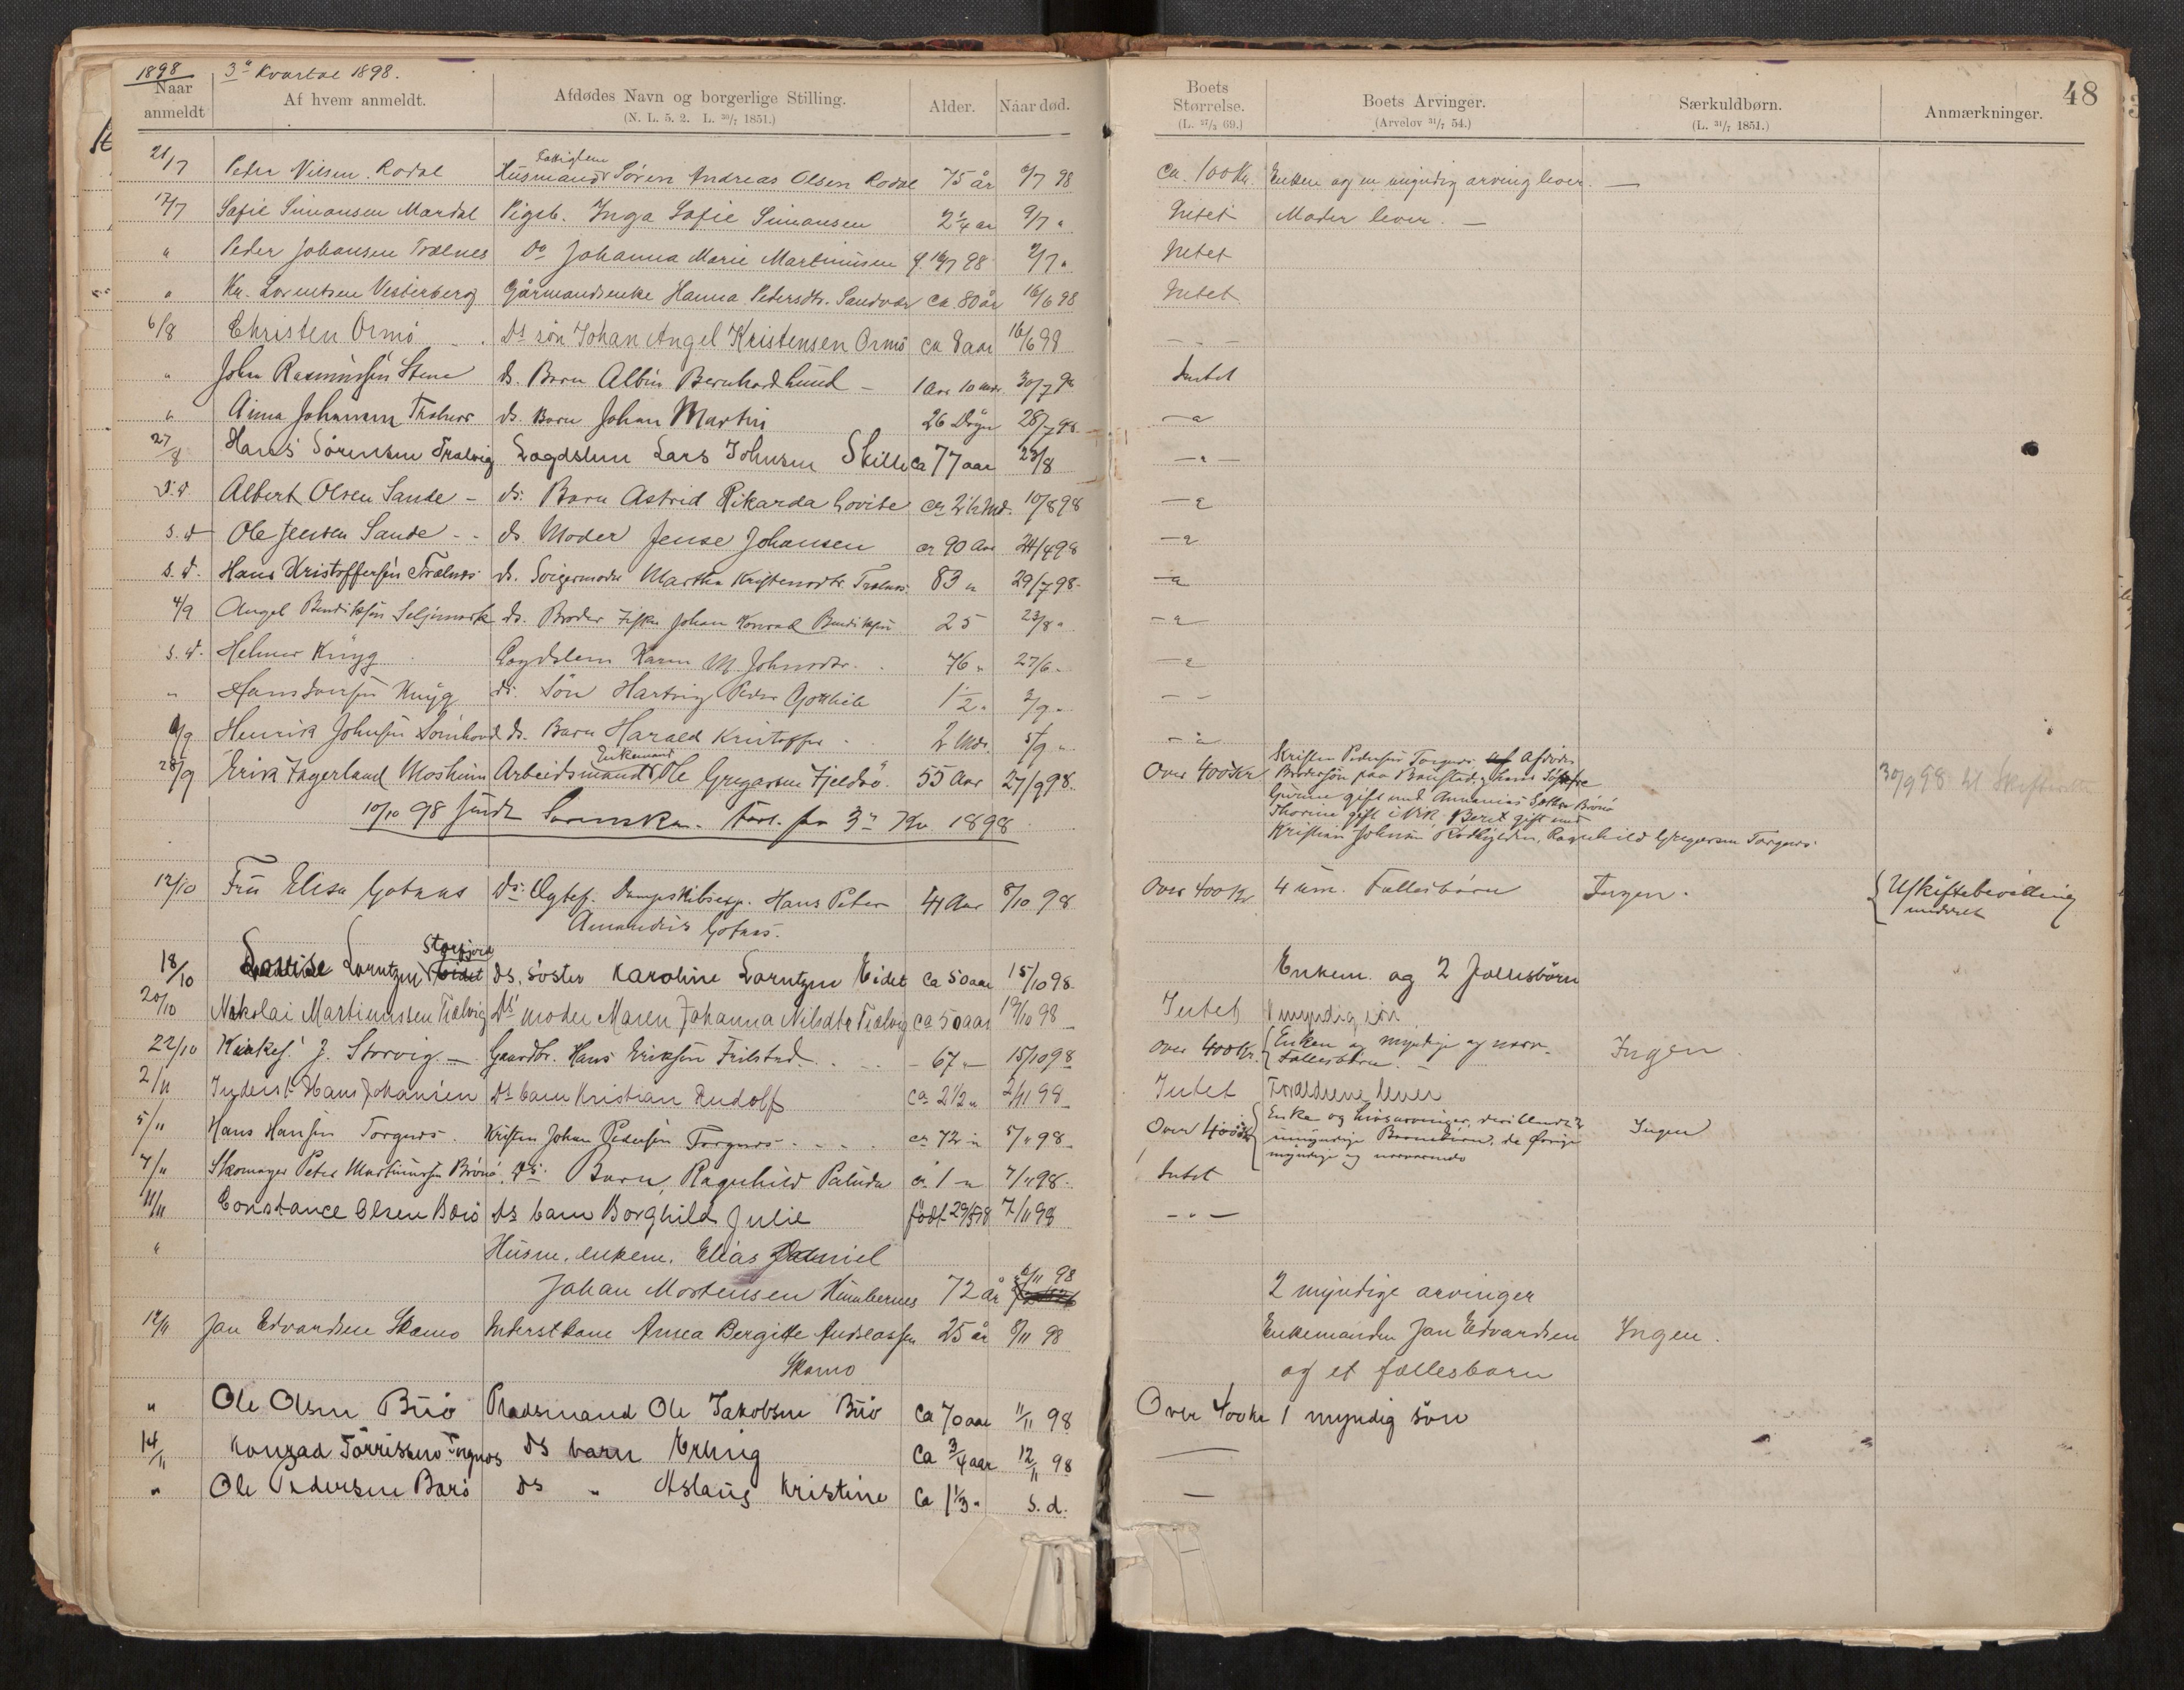 1898 3die Kvartal 1898.
48
Naar anmeldt Af hvem anmeldt. Afdødes Navn og borgerlige Stilling. Alder. Naar død. Boets Størrelse. Boets Arvinger. Særkuldbørn. Anmærkninger.
(N. L. 5. 2. L. 30/7 1851.) (L. 27/3 69.) (Arvelov 31/7 54.) (L. 31/7 1851.)
Fattiglem
21/7 Peter Nilsen Rodal Husmand Søren Andreas Olsen Rodal 75 år 6/7 98 Ca. 100 Kr. Enken og en myndig arving lever. —
17/7 Sofie Simonsen Mardal Pigeb. Inga Sofie Simonsen 2 1/4 aar 9/7 " Intet Moder lever. —
" Peder Johansen Trælnes Do Johanna Marie Martinusen 98 2/7 " Intet
" Kr. Lorentsen Vesterberg Gårmandsenke Hanna Pedersdtr. Sandvær ca 80 år 16/6 98 Intet
6/8 Christen Ormö Ds søn Johan Angel Kristensen Ormö ca 8 aar 16/6 98 - - -
" John Rasmussen Stene ds. Barn Albin Bernhard Lund - 1 Aar 10 mdr. 30/7 98 Intet
" Johansen ds. Barn Johan Martin 26 Dögn 28/7 98 - " -
27/8 Hans Sörensen Trælvig Lægdslem Lars Johnsen Skille ca 77 aar 23/8 - " -
S.d Albert Olsen Sande - ds. Barn Astrid Rikarda Lovise ca 2 1/2 Md. 10/8 98 - " -
s. d Ole Jensen Sande - - ds Moder Jense Johansen ca 90 Aar 24/4 98 - " -
s. d. Hans Kristoffersen Trælnes ds. Svigermoder Martha Kristensdtr Trælnes 83 " 29/7 98 - " -
4/9 Angel Bendiksen Seljemark ds. Broder Fisker Johan Konrad Bendiksen 25 23/8 " - " -
s. d. Helmer Knyg Lægdslem Karen M. Johnsdtr. 76 " 27/6 " - " -
" Hans Jensen Knyg ds. Sön Hartvig Peder Gottlieb 1 1/2 " 3/9 " - -
9/9 Henrik Johnsen ds. Barn Harald Kristoffer 2 Mdr. 5/9 " - " -
Enkemand
28/9 Erik Fagerland Mosheim Arbeidsmand Ole Gregersen Fjeldvö 55 Aar 27/9 98. Over 400 Kr
Kristen Pedersen Torgnes Afdödes
Brodersön paa Baustad, Hans Söstre
Gurine gift med Annanias Brönö
Thorine gift i Vik, Beret gift med
Kristian Johnsen Rodhylden, Ragnhild Gregersen Torgnes.
30/9 98 til Skifteretten
10/10 98 sendt Fort. for 3die Kv 1898
12/10 Fru Elisa Gotaas Ds: Ægtef. Dampskibsexp. Hans Peter 41 Aar 8/10 98 Over 400 Kr 4 um. Fællesbörn Ingen. Uskiftebevilling meddelt
Amandus Gotaas.
Storfjord
18/10 Lovise Lorntzen Eidet Ds. söster Karoline Lorntzen Eidet ca 50 aar 15/10 98 Enkem. og 2 fællesbörn
20/10 Nikolai Martinussen Trælvig Ds moder Maren Johanna Nilsdtr Trælvig ca 50 aar 19/10 98 Intet 1 myndig sön
22/10 Kirkes. J. Storvig — Gaardbr. Hans Eriksen Tilstad - 67 " 15/10 98 over 400 Kr. Enken og myndige og nærv. Ingen.
Fællesbörn. —
2/11 Inderst Hans Johansen Ds barn Kristian Rudolf ca 2 1/2 " 2/11 98 Intet Forældrene lever
5/11 Hans Hansen Torgnes Kristen Johan Pedersen Torgnes ca 72 " 5/11 98 Over 400 Kr Enke og Livsarvinger, deriblandt 2 Ingen
umyndige Barnebörn, de Övrige
myndige og nærværende
7/11 Skomager Peter Martinussen Brönö Ds: Barn, Ragnhild Palude ca 1 " 7/11 98 Intet
11/11 Constance Olsen Barö Ds barn Borghild Julie födt 29/5 98 7/11 98 - " -
" Husm. enkem. Elias Daniel
6/11 98
Johan Mortensen Humbernes 72 år 2 myndige arvinger
12/11 Jan Edvardsen Skomo Inderstkone Anna Bergitte Andreassen 25 år 8/11 98 Enkemanden Jan Edvardsen Ingen.
Skomo og et fællesbarn
" Ole Olsen Buö Pladsmand Ole Jakobsen Buö Ca 70 aar 11/11 98 Over 400 kr 1 myndig sön
14/11 Konrad Torrissen Torgnes Ds barn Erling Ca 3/4 aar 12/11 98 —
" Ole Pedersen Barö Ds " Aslaug Kristine Ca 1 1/3 " s. d. —